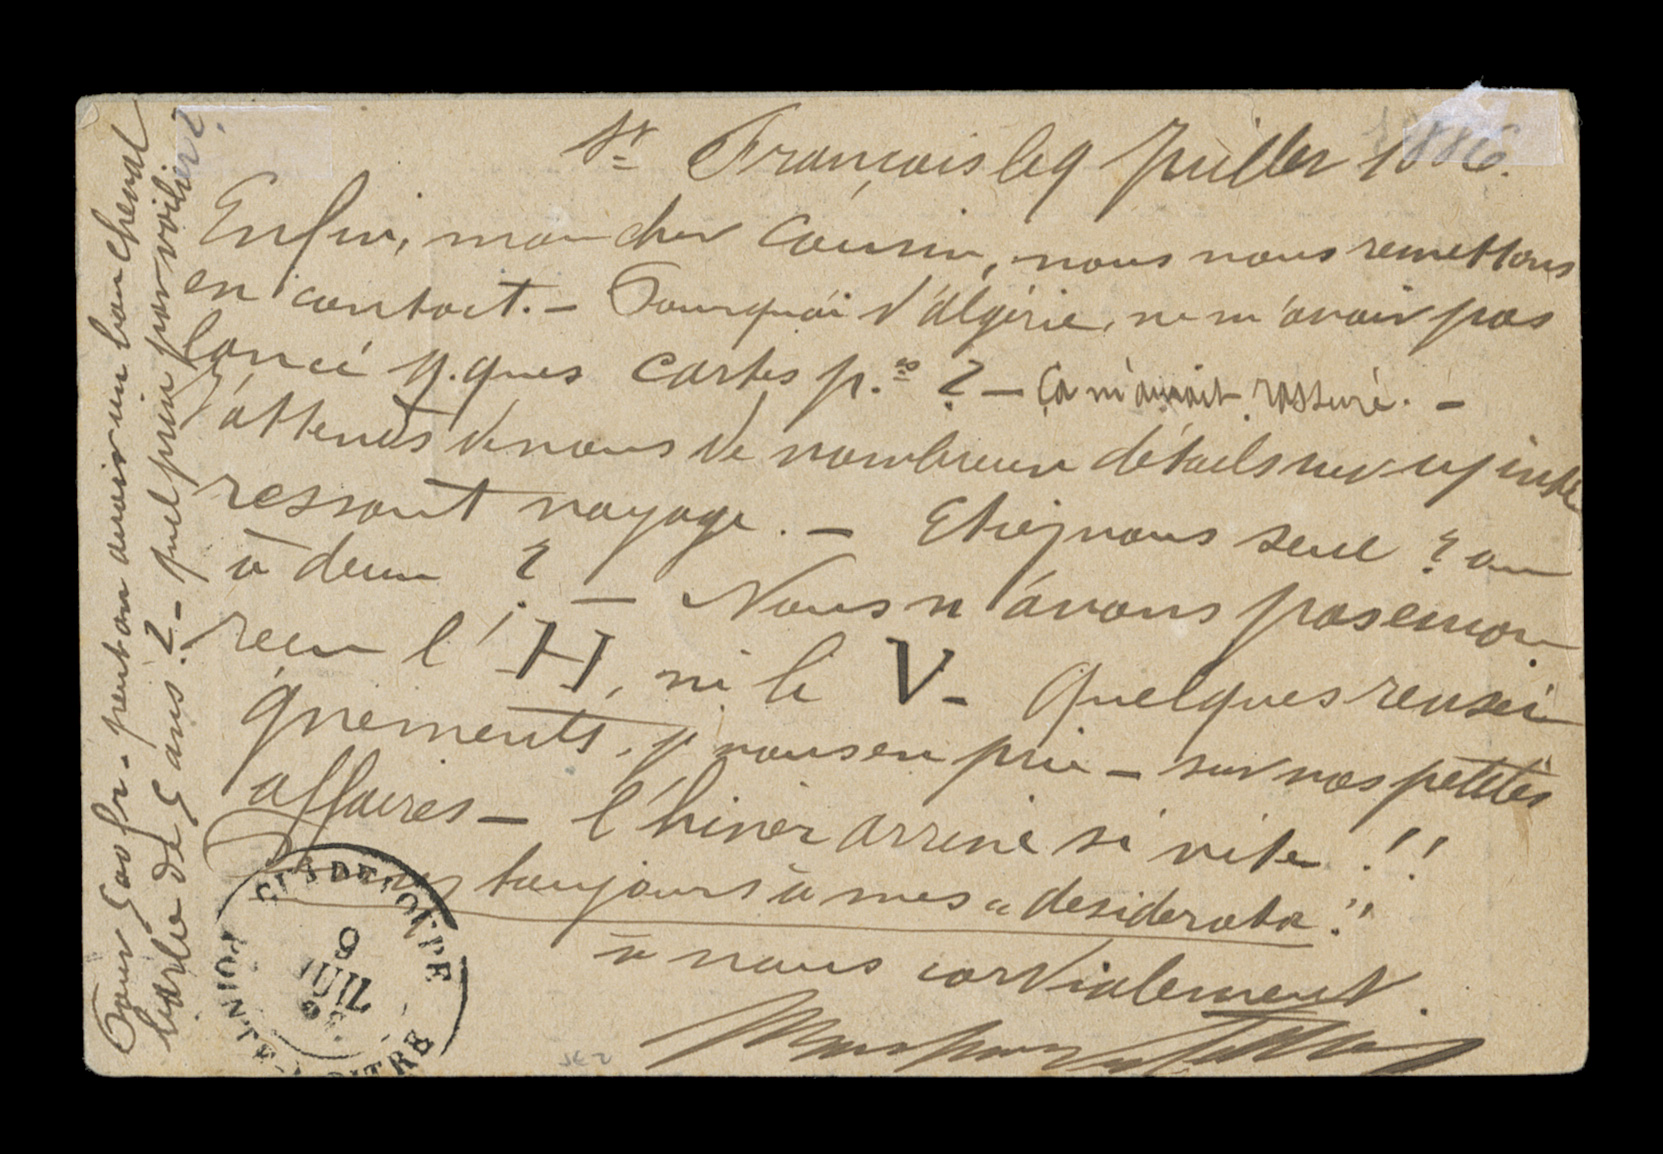 St François le 9 Juillet 1886.
Enfin, mon cher Cousin, nous nous remettons
en contact. – Pourquoi d'Algérie, ne m'avoir pas
lancé q.ques cartes p.es ? – Ça m'aurait rassuré. –
J'attends de vous de nombreux détails sur cet inté
ressant voyage. – Etiez vous seul ? ou
à deux ? – Nous n'avons pas encore
reçu l'H, ni le V – Quelques rensei
gnements, je vous en prie – sur nos petites
affaires – l'hiver arrive si vite !!
toujours à mes "desiderata"
à vous cordialement
Pour 500 fr. – peut on avoir un bon cheval
de 5 ans ? – quel prix par voilier ?
GUADELOUPE
9
JUIL
POINTE A PITRE